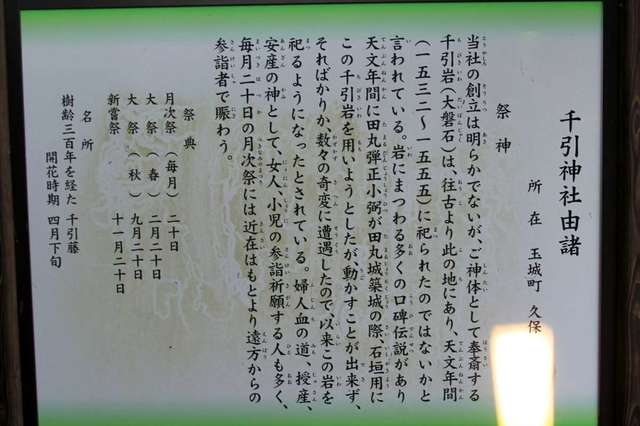 千引神社由諸
所在 玉城町 久保
祭神
当社の創立は明らかでないが、ご神体として奉斎する
千引岩(大磐石)は、往古より此の地にあり、天文年間
(一五三二~一五五五)に祀られたのではないかと
言われている。岩にまつわる多くの口碑伝説があり
天文年間に田丸弾正少弼が田丸城築城の際、石垣用に
この千引岩を用いようとしたが動かすことが出来ず、
そればかりか数々の奇変に遭遇したので、以来この岩を
祀るようになったとされている。婦人血の道、授産、
安産の神として、女人、小児の参詣祈願する人も多く、
毎月二十日の月次祭には近在はもとより遠方からの
参詣者で賑わう。
祭典
月次祭(毎月)二十日
大祭(春)二月二十日
大祭(秋)九月二十日
新嘗祭 十一月二十日
名所
樹齢三百年を経た 千引藤
開花時期 四月下旬